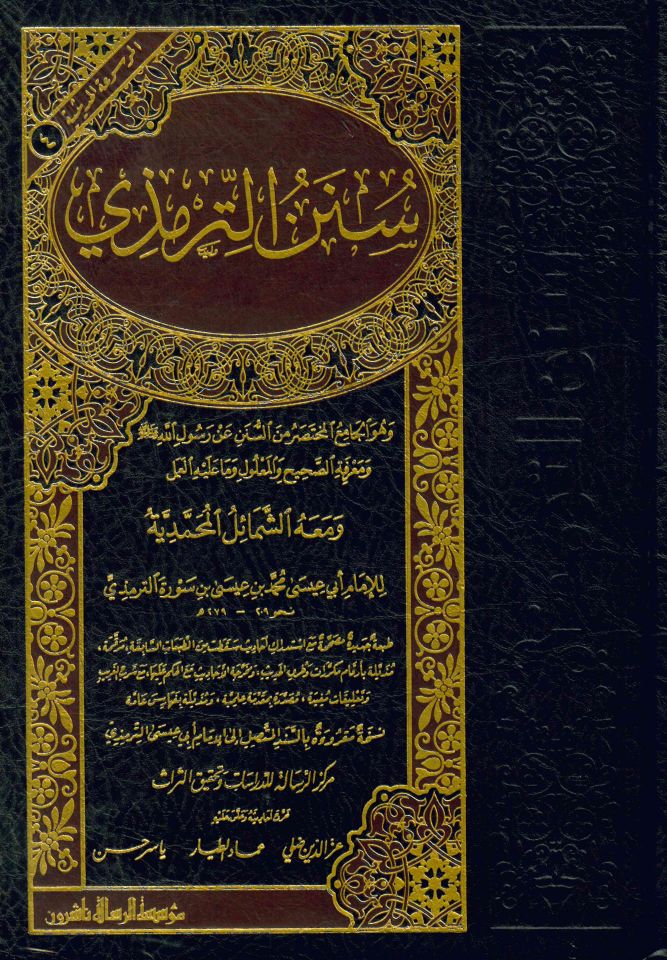 الموسوعة الحديثية
٤
سُنَنُ التِّرمِذِي
وَهُوَ الجَامِعُ المُختَصَرُ مِنَ السُّنَنِ عَنْ رَسُولِ اللهِ ﷺ
وَمَعْرِفَةِ الصَّحِيحِ وَالمَعْلُولِ وَمَا عَلَيْهِ العَمَل
وَمَعَهُ الشَّمَائِلُ المُحَمَّدِيَّة
لِلإِمَامِ أَبِي عِيسَى مُحَمَّدِ بنِ عِيسَى بنِ سَوْرَةَ التِّرمِذِيِّ
نحو ٢٠٩ - ٢٧٩ هـ
طبعة جديدة مصححة مع استدراك أحاديث سقطت من الطبعات السابقة، مرقمة،
مذيلة بأرقام مكررات وطرق الحديث، وتخريج الأحاديث مع الحكم عليها، مع شرح الغريب
وتعليقات مفيدة، مصدرة بمقدمة علمية، ومذيلة بفهارس عامة
نسخة مقروءة بالسند المتصل إلى الإمام أبي عيسى الترمذي
مركز الرسالة للدراسات وتحقيق التراث
عز الدين ضلي عماد الطيار ياسر حسن
مؤسسة الرسالة ناشرون